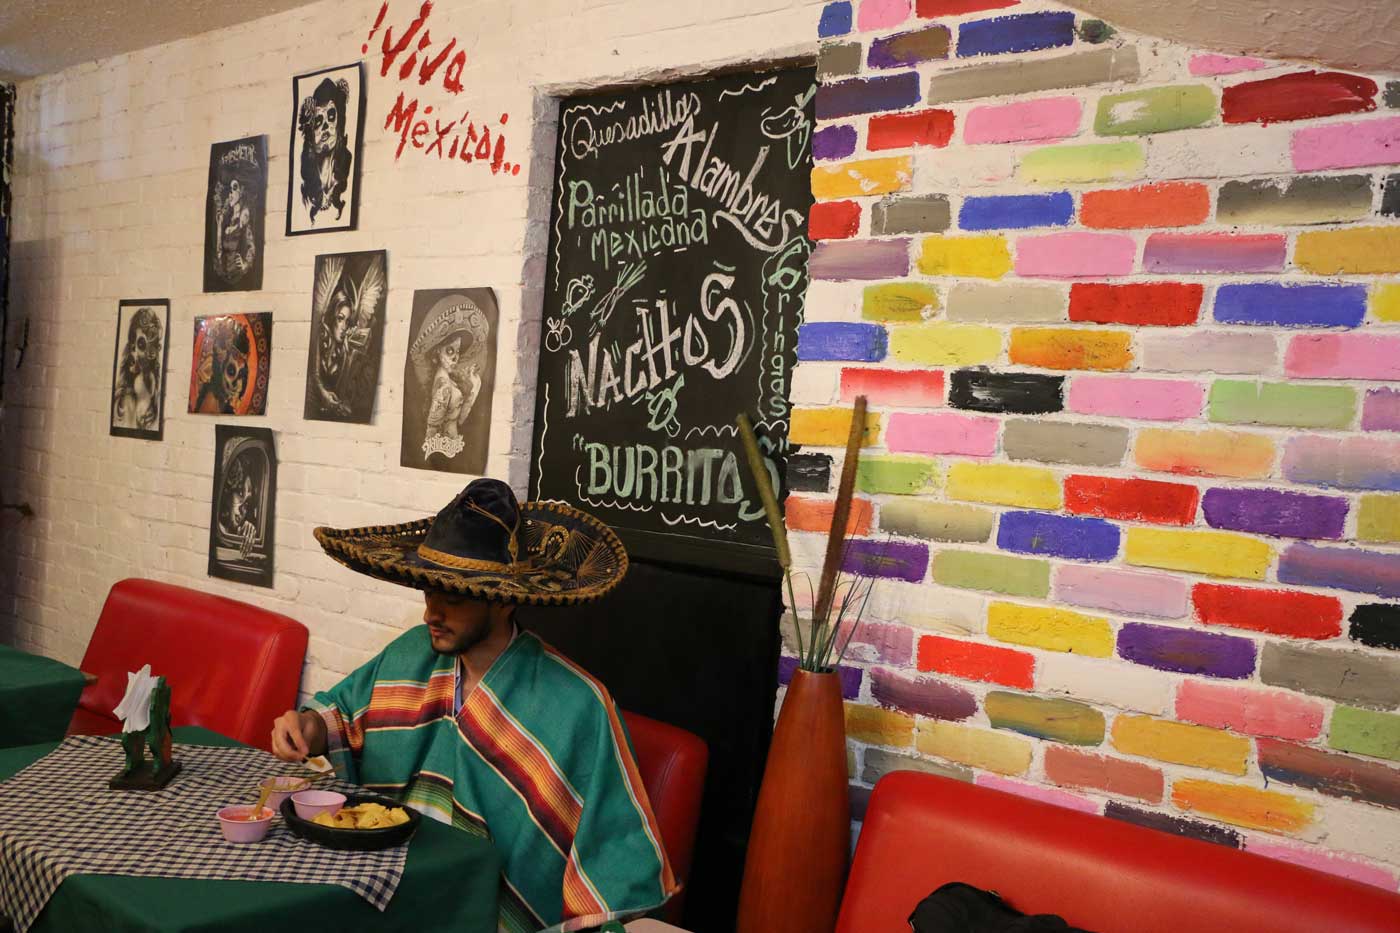 ¡Viva
México!..
Quesadillas
Alambres
Parrillada
Mexicana
Gringas
NACHOS
"BURRITOS"